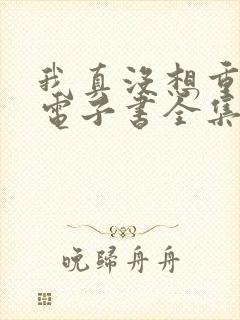 我真沒想重
電子書全集
晚歸舟舟